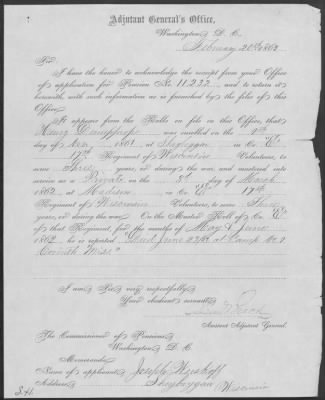 Adjutant General's Office,
Washington D. C.
February 20th 1863
Sir
I have the honor to acknowledge the receipt from your Office
of application for Pension No. 11.232 and to return it
herewith, with such information as is furnished by the files of this
Office.
It appears from the Rolls on file in this Office, that
Henry was enrolled on the
day of Nov 1861 at Sheboygan in Co. "E"
17th Regiment of Wisconsin Volunteers, to
serve Three years, or during the war, and mustered into
service as a Private on the day of March
1862 at Madison in Co. 17th
Regiment of Wisconsin Volunteers, to serve Three
years, or during the war. On the Muster Roll of Co. "E"
of that Regiment, for the months of May & June
1862 he is reported "Died June 23/62 at Camp No. 9
Corinth Miss"
I am Sir very respectfully
Your obedient servant
Assistant Adjutant General.
The Commissioner of Pensions
Washington D. C.
Memoranda
Name of applicant Joseph
Address Sheboygan Wisconsin